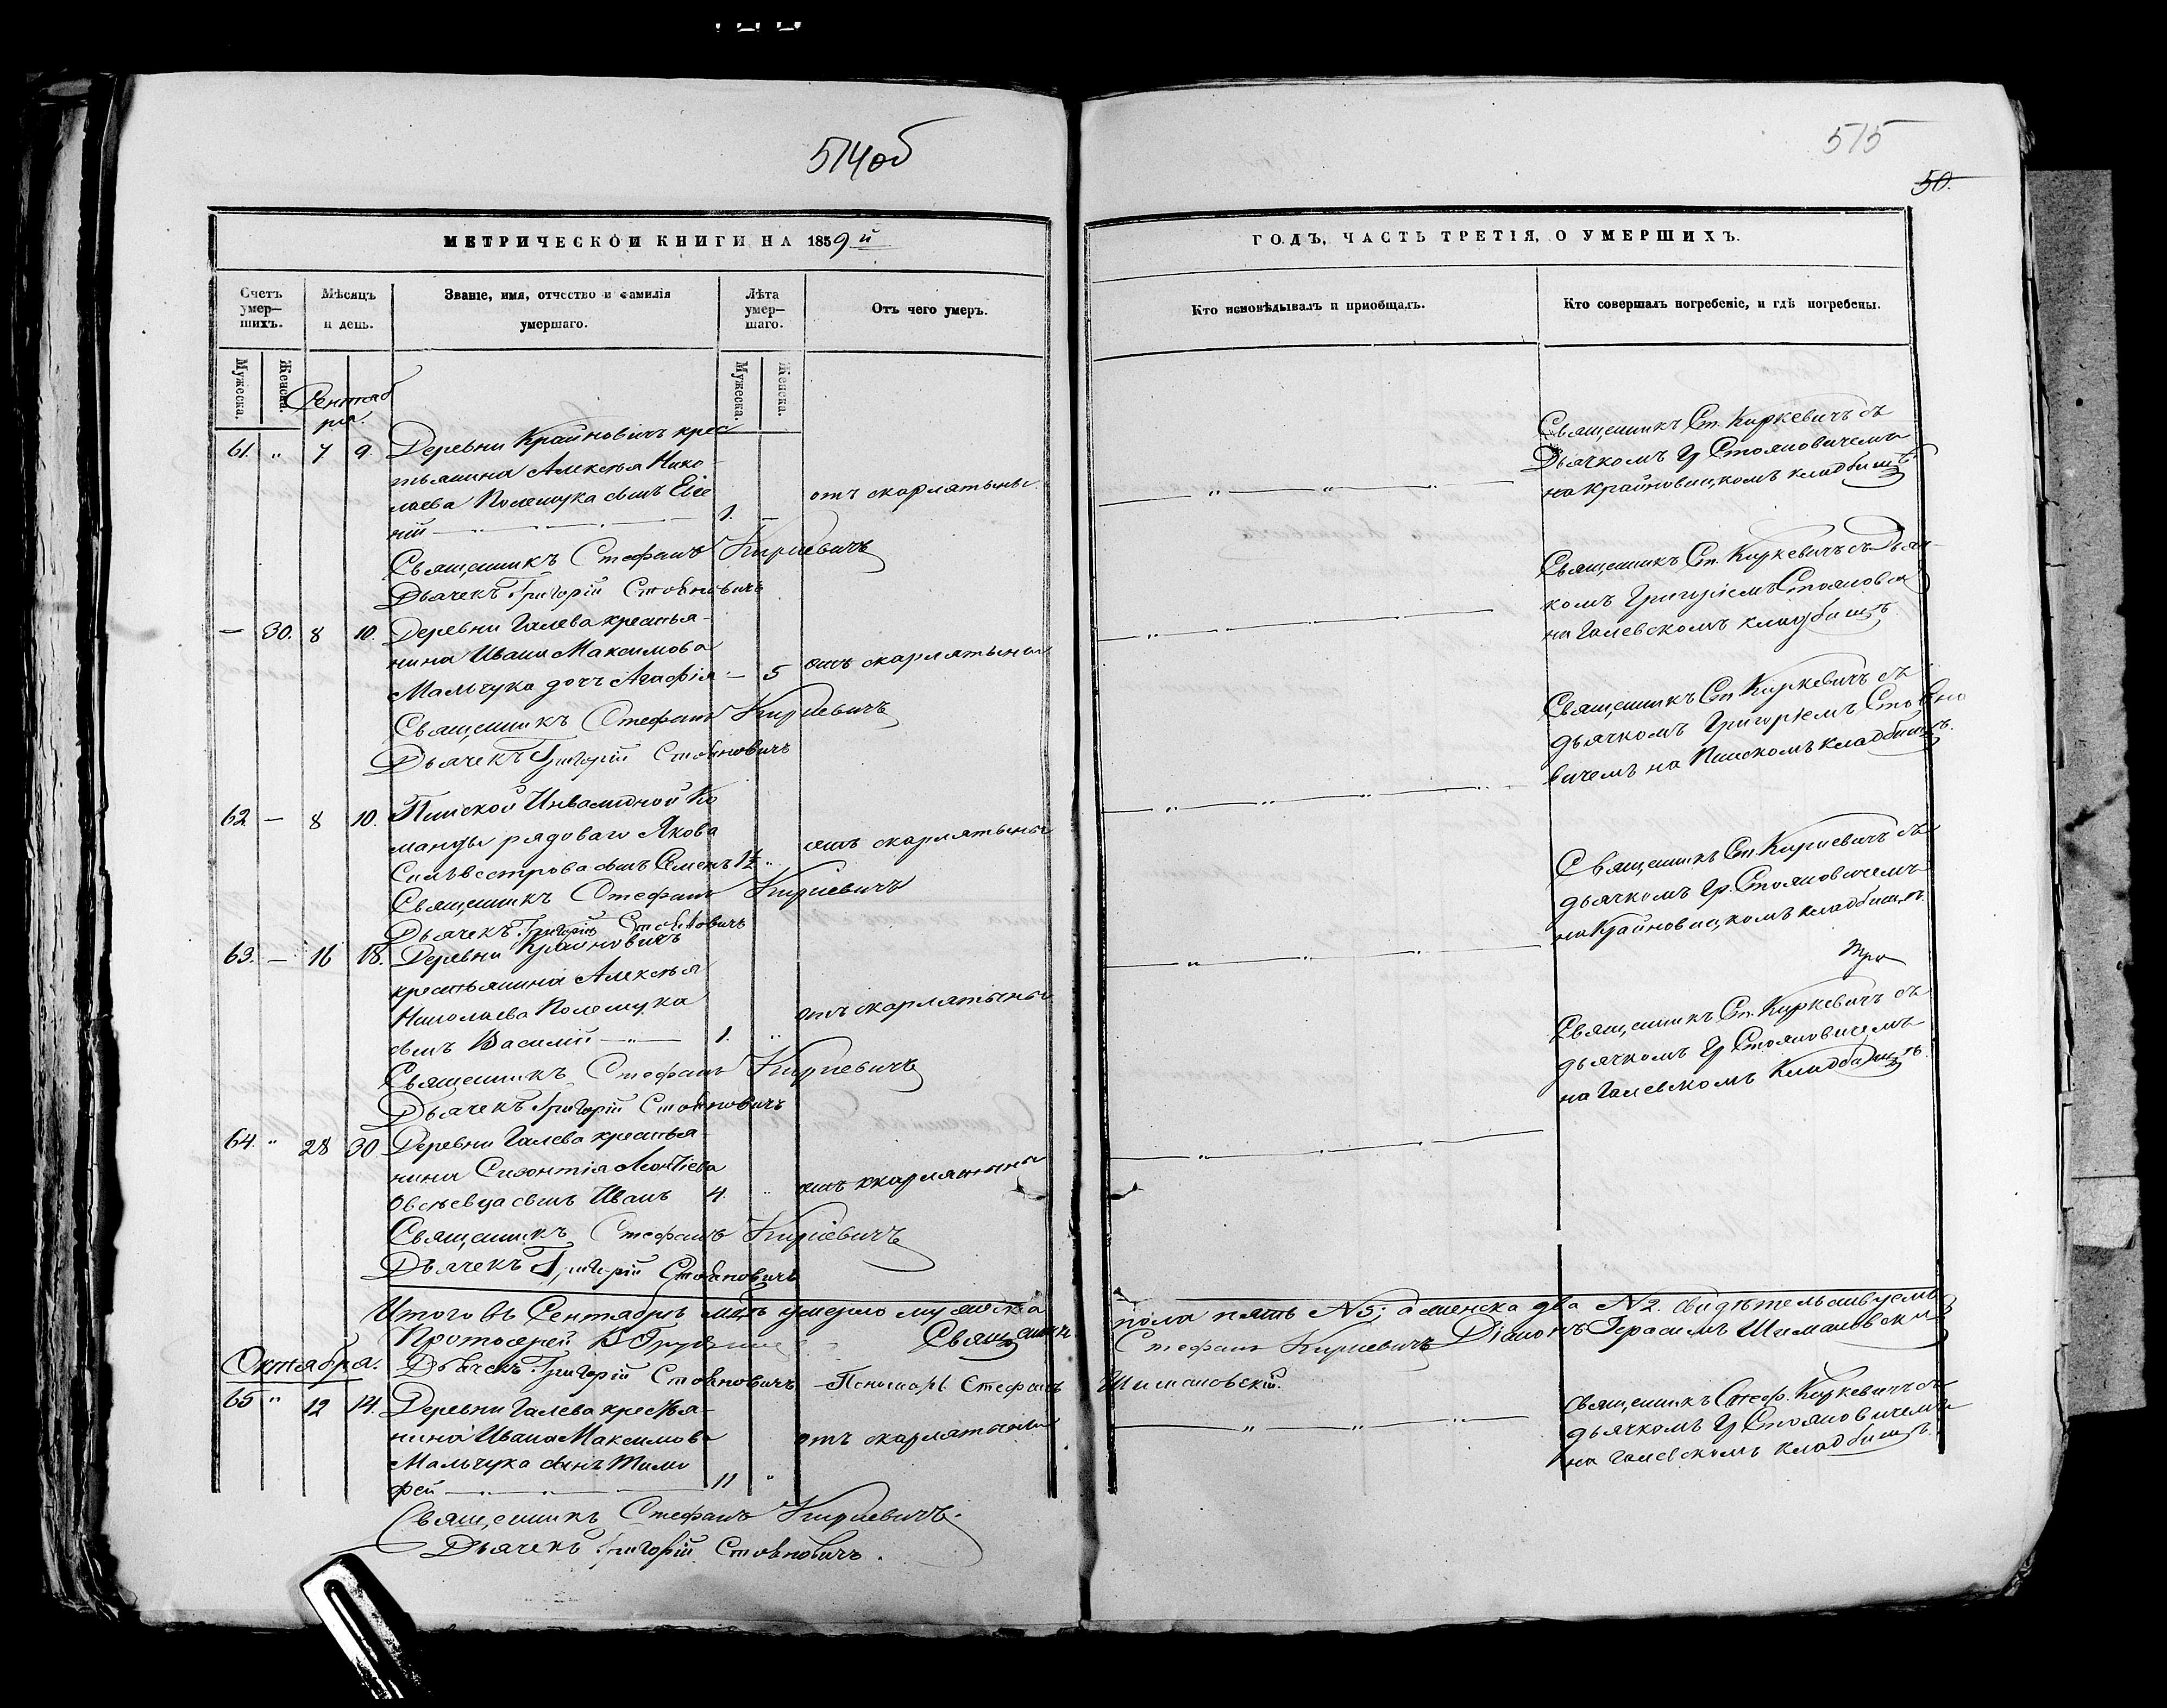 514об
515
50.
МЕТРИЧЕСКОЙ КНИГИ НА 1859й
ГОДЪ, ЧАСТЬ ТРЕТІЯ, О УМЕРШИХЪ.
Счетъ умер—шихъ.
Мѣсяцъ и день.
Званіе, имя, отчество и фамилія умершаго.
Лѣта умер—шаго.
Отъ чего умеръ.
Кто исповѣдывалъ и пріобщалъ.
Кто совершалъ погребеніе, и гдѣ погребены.
Мужеска.
Женска.
Мужеска.
Женска.
Сентяб
ря.
61. " 7 9. Деревни Крайновичъ крес
тьянина Алексѣя Нико
лаева Полещука сынъ
1. —
отъ скарлятыны
Священникъ Ст. Киркевичъ съ
Дьячкомъ Гр Стояновичемъ
на Крайновицкомъ кладбищѣ
Священникъ Стефанъ Киркевичъ
Дьячекъ Григорій Стояновичъ
— 30. 8 10. Деревни Галева крестья-
нина Ивана Максимова
Мальчука дочь Агафія — 5
отъ скарлятыны
Священникъ Ст. Киркевичъ съ Дьяч-
комъ Григоріемъ Стоянови
на Галевскомъ кладбищѣ
Священникъ Стефанъ Киркевичъ
Дьячекъ Григорій Стояновичъ
62 — 8 10. Пинской Инвалидной Ко
манды рядоваго Якова
Сильвестрова сынъ Семенъ 1½ "
отъ скарлятыны
Священникъ Ст. Киркевичъ съ
дьячкомъ Григоріемъ Стояно
вичемъ на Пинскомъ кладбищѣ.
Священникъ Стефанъ Киркевичъ
Дьячекъ Григорій Стояновичъ
63. — 16 18. Деревни Крайновичъ
крестьянина Алексѣя
Николаева Полещука
сынъ Василій 1. "
отъ скарлятыны
Священникъ Ст. Киркевичъ съ
дьячкомъ Гр. Стояновичемъ
на Крайновицкомъ кладбищѣ.
Священникъ Стефанъ Киркевичъ
Дьячекъ Григорій Стояновичъ
64. " 28 30. Деревни Галева крестья-
нина Сизонтія Леонтіева
Овсѣевца сынъ Иванъ 4. "
отъ скарлятыны
Священникъ Ст. Киркевичъ съ
дьячкомъ Гр Стояновичемъ
на Галевскомъ Кладбищѣ.
Священникъ Стефанъ Киркевичъ
Дьячекъ Григорій Стояновичъ
Итого въ Сентябрѣ мцѣ умерло мужеска
пола пять №5; а женска два №2. свидѣтельствуемъ
Протоіерей
Священникъ
Стефанъ Киркевичъ Діаконъ Герасимъ Шимановскій
Дьячекъ Григорій Стояновичъ Пономарь Стефанъ
Шимановскій.
Октября.
65 " 12 14. Деревни Галева крестья-
нина Ивана Максимова
Мальчука сынъ Тимо
фей 11 "
отъ скарлятыны
Священникъ Стеф. Киркевичъ съ
дьячкомъ Гр Стояновичемъ
на Галевскомъ кладбищѣ.
Священникъ Стефанъ Киркевичъ.
Дьячекъ Григорій Стояновичъ.